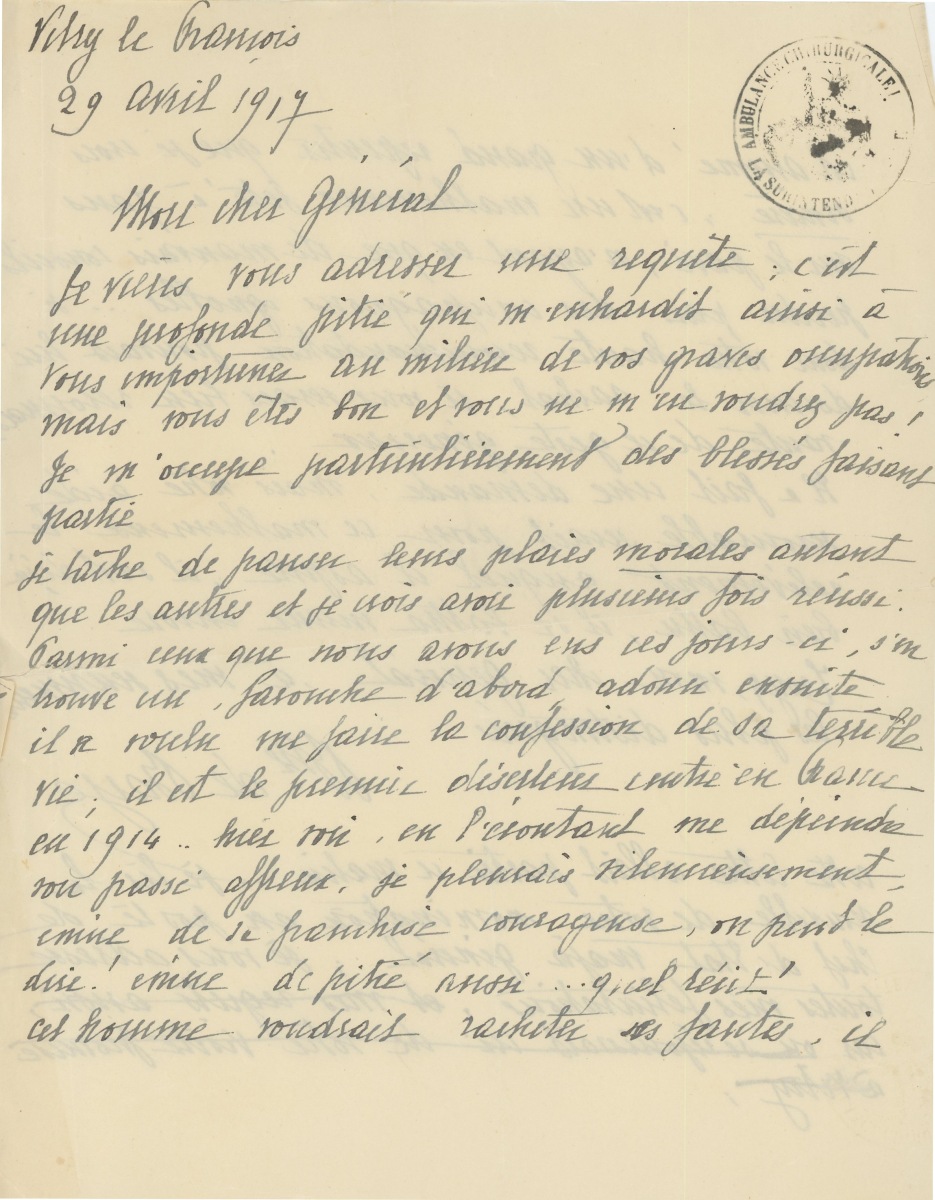 Vitry le François
29 Avril 1917
AMBULANCE CHIRURGICALE
LA SURINTEND
Mon cher Général
Je viens vous adresser une requête ; c'est
une profonde pitié qui m'enhardit ainsi à
vous importuner au milieu de vos graves occupations
mais vous êtes bon et vous ne m'en voudrez pas !
Je m'occupe particulièrement des blessés faisant
partie
je tâche de panser leurs plaies morales autant
que les autres et je crois avoir plusieurs fois réussi.
Parmi ceux que nous avons eus ces jours-ci, s'en
trouve un, farouche d'abord, adouci ensuite
il a voulu me faire la confession de sa terrible
vie ; il est le premier déserteur rentré en France
en 1914 .. hier soir, en l'écoutant me dépeindre
son passé affreux, je pleurais silencieusement,
émue de sa franchise courageuse, on peut le
dire ! émue de pitié aussi ... quel récit !
cet homme voudrait racheter ses fautes, il